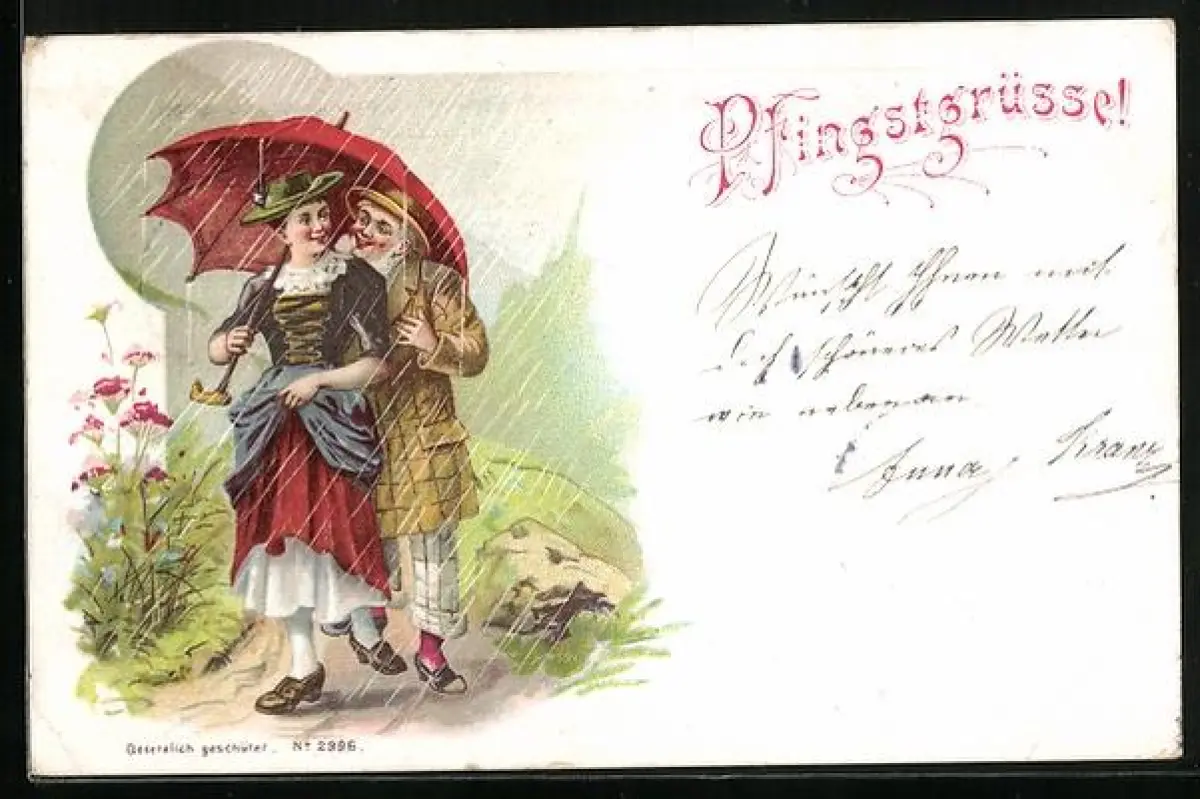 Pfingstgrüsse!
Wünscht Ihnen
schöneres Wetter
wie nebenan
Anna Kranz
Gesetzlich geschützt. Nº 2996.